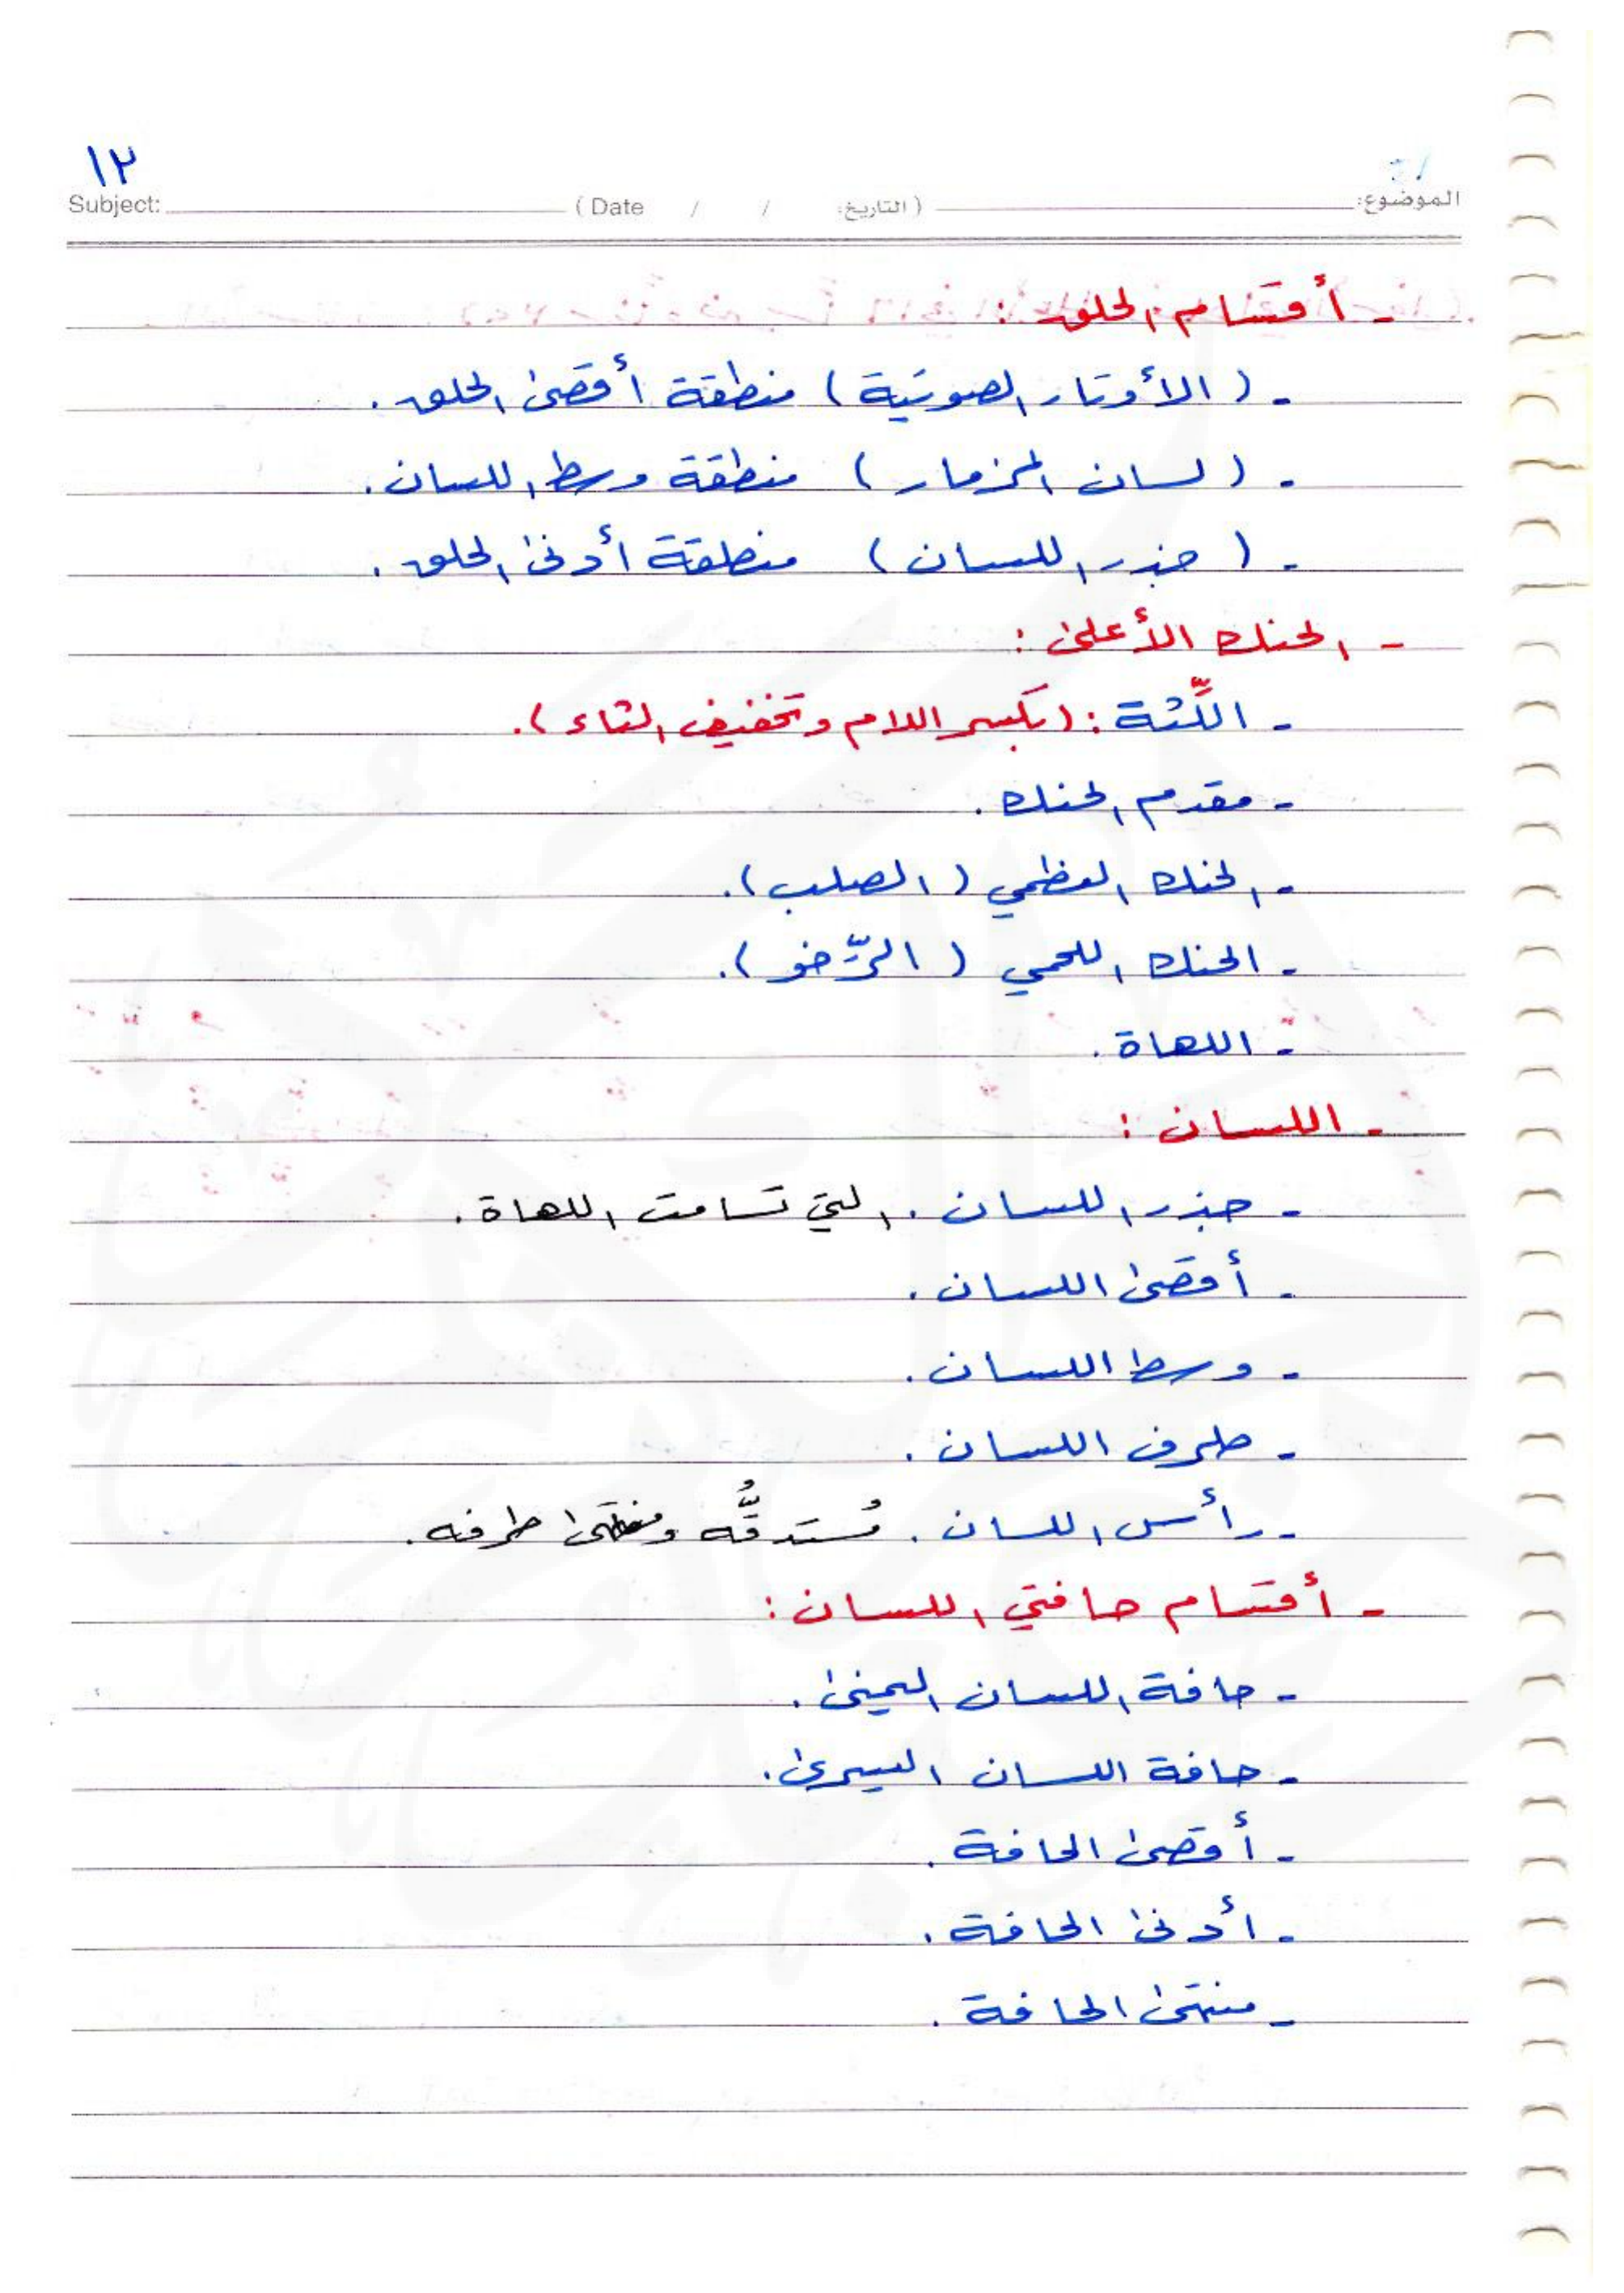 ١٢
الموضوع: (التاريخ: / / Date) Subject:
- أقسام الحلق :
- (الأوتار الصوتية) منطقة أقصى الحلق.
- (لسان المزمار) منطقة وسط اللسان.
- (جذر اللسان) منطقة أدنى الحلق.
- الحنك الأعلى :
- اللِّثة : (بكسر اللام وتخفيف الثاء).
- مقدم الحنك.
- الحنك العظمي (الصلب).
- الحنك اللحمي (الرّخو).
- اللهاة.
- اللسان :
- جذر اللسان. التي تسامت اللهاة.
- أقصى اللسان.
- وسط اللسان.
- طرف اللسان.
- رأس اللسان. مُستدقُّه ومنتهى طرفه.
- أقسام حافتي اللسان :
- حافة اللسان اليمنى.
- حافة اللسان اليسرى.
- أقصى الحافة.
- أدنى الحافة.
- منتهى الحافة.